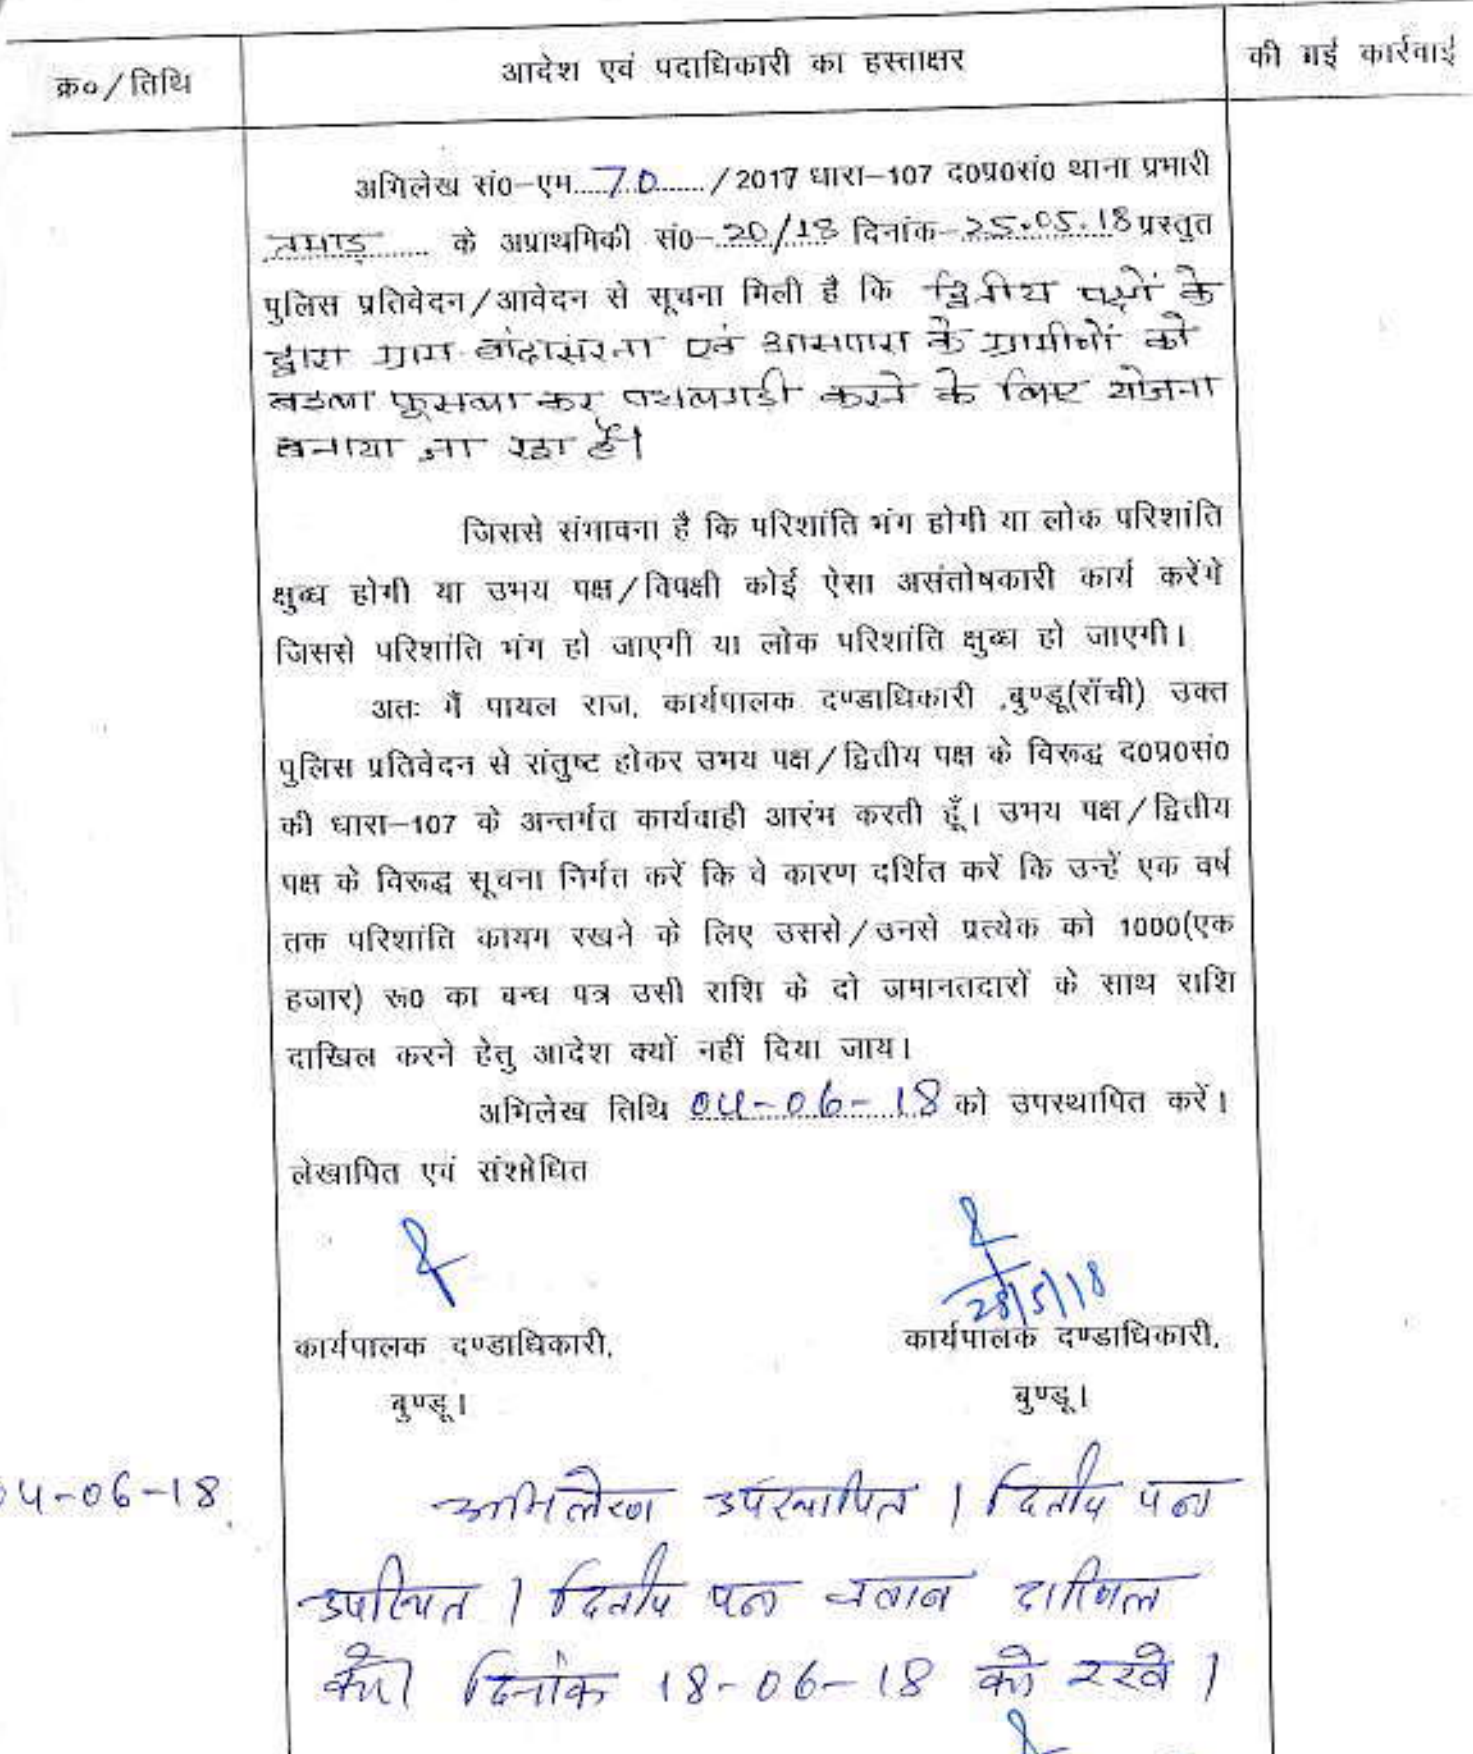 क्र०/तिथि
आदेश एवं पदाधिकारी का हस्ताक्षर
की गई कार्रवाई
अभिलेख सं0-एम 70 /2017 धारा-107 द0प्र0सं0 थाना प्रभारी
तमाड़ के अप्राथमिकी सं0-20/18 दिनांक-25.05.18 प्रस्तुत
पुलिस प्रतिवेदन/आवेदन से सूचना मिली है कि द्वितीय पक्षों के
द्वारा ग्राम एवं आसपास के ग्रामीणों को
फूसला कर पत्थलगड़ी करने के लिए योजना
बनाया जा रहा है।
जिससे संभावना है कि परिशांति भंग होगी या लोक परिशांति
क्षुब्ध होगी या उभय पक्ष/विपक्षी कोई ऐसा असंतोषकारी कार्य करेंगे
जिससे परिशांति भंग हो जाएगी या लोक परिशांति क्षुब्ध हो जाएगी।
अतः मैं पायल राज, कार्यपालक दण्डाधिकारी ,बुण्डू(राँची) उक्त
पुलिस प्रतिवेदन से संतुष्ट होकर उभय पक्ष/द्वितीय पक्ष के विरूद्ध द0प्र0सं0
की धारा-107 के अन्तर्गत कार्यवाही आरंभ करती हूँ। उभय पक्ष/द्वितीय
पक्ष के विरूद्ध सूचना निर्गत करें कि वे कारण दर्शित करें कि उन्हें एक वर्ष
तक परिशांति कायम रखने के लिए उससे/उनसे प्रत्येक को 1000(एक
हजार) रू0 का बन्ध पत्र उसी राशि के दो जमानतदारों के साथ राशि
दाखिल करने हेतु आदेश क्यों नहीं दिया जाय।
अभिलेख तिथि 04-06-18 को उपस्थापित करें।
लेखापित एवं संशोधित
28/5/18
कार्यपालक दण्डाधिकारी,
कार्यपालक दण्डाधिकारी,
बुण्डू।
बुण्डू।
04-06-18
अभिलेख उपस्थापित। द्वितीय पक्ष
उपस्थित। द्वितीय पक्ष दाखिल
करें। दिनांक 18-06-18 को रखें।